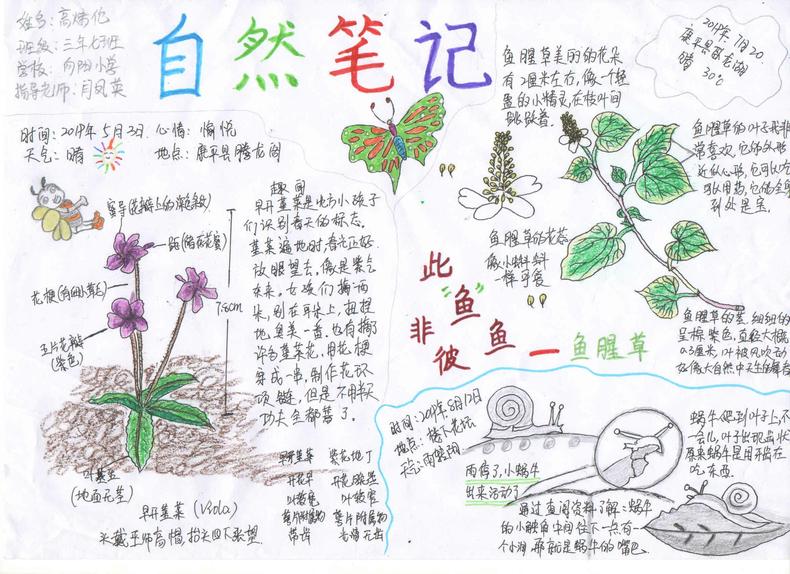 姓名:高
班级:三年七班
学校:向阳小学
指导老师:闫凤英
自然笔记
2019年7月20.
康平县卧龙湖
晴 30℃
时间:2019年5月3日. 心情:愉悦
天气:晴 地点:康平县腾龙阁
蜜导(花瓣上的深色纹)
距(储存花蜜)
花梗(有细小茸毛)
五片花瓣
(紫色)
7.8cm
叶基生
(地面无茎)
早开堇菜(Viola)
头戴巫师高帽,抬头四下张望
趣闻
早开堇菜是北方小孩子
们识别春天的标志。
堇菜遍地时,春光正好.
放眼望去,像是紫气
东来。女孩们摘两
朵,别在耳朵上,扭捏
地臭美一番.也有摘
许多堇菜花,用花梗
穿成一串,制作花环
项链,但是不用半天
功夫全都蔫了.
早开堇菜 紫花地丁
开花早 开花较迟
叶较宽 叶较窄
萼片附属物 萼片附属物
带齿 光滑无齿
鱼腥草美丽的花朵
有2厘米左右,像一个轻
盈的小精灵,在枝叶间
跳跃着.
鱼腥草的花蕊
像小蝌蚪
一样可爱
鱼腥草的叶子我非
常喜欢,它的外形
近似心形,它可以吃
可以用药,它的全身
到处是宝.
鱼腥草的茎,细细的
呈棕紫色,直径大概
0.3厘米,叶被风吹动
好像大自然中天生的舞者
此“鱼”
非彼鱼—鱼腥草
时间:2019年8月12日
地点:楼下花坛
天气:雨转阴
雨停了,小蜗牛
出来活动了
通过查阅资料了解:蜗牛
的小触角中间往下一点有一
个小洞,那就是蜗牛的嘴巴.
蜗牛爬到叶子上,不
一会儿,叶子出现齿状
原来蜗牛是用牙齿在
吃东西.